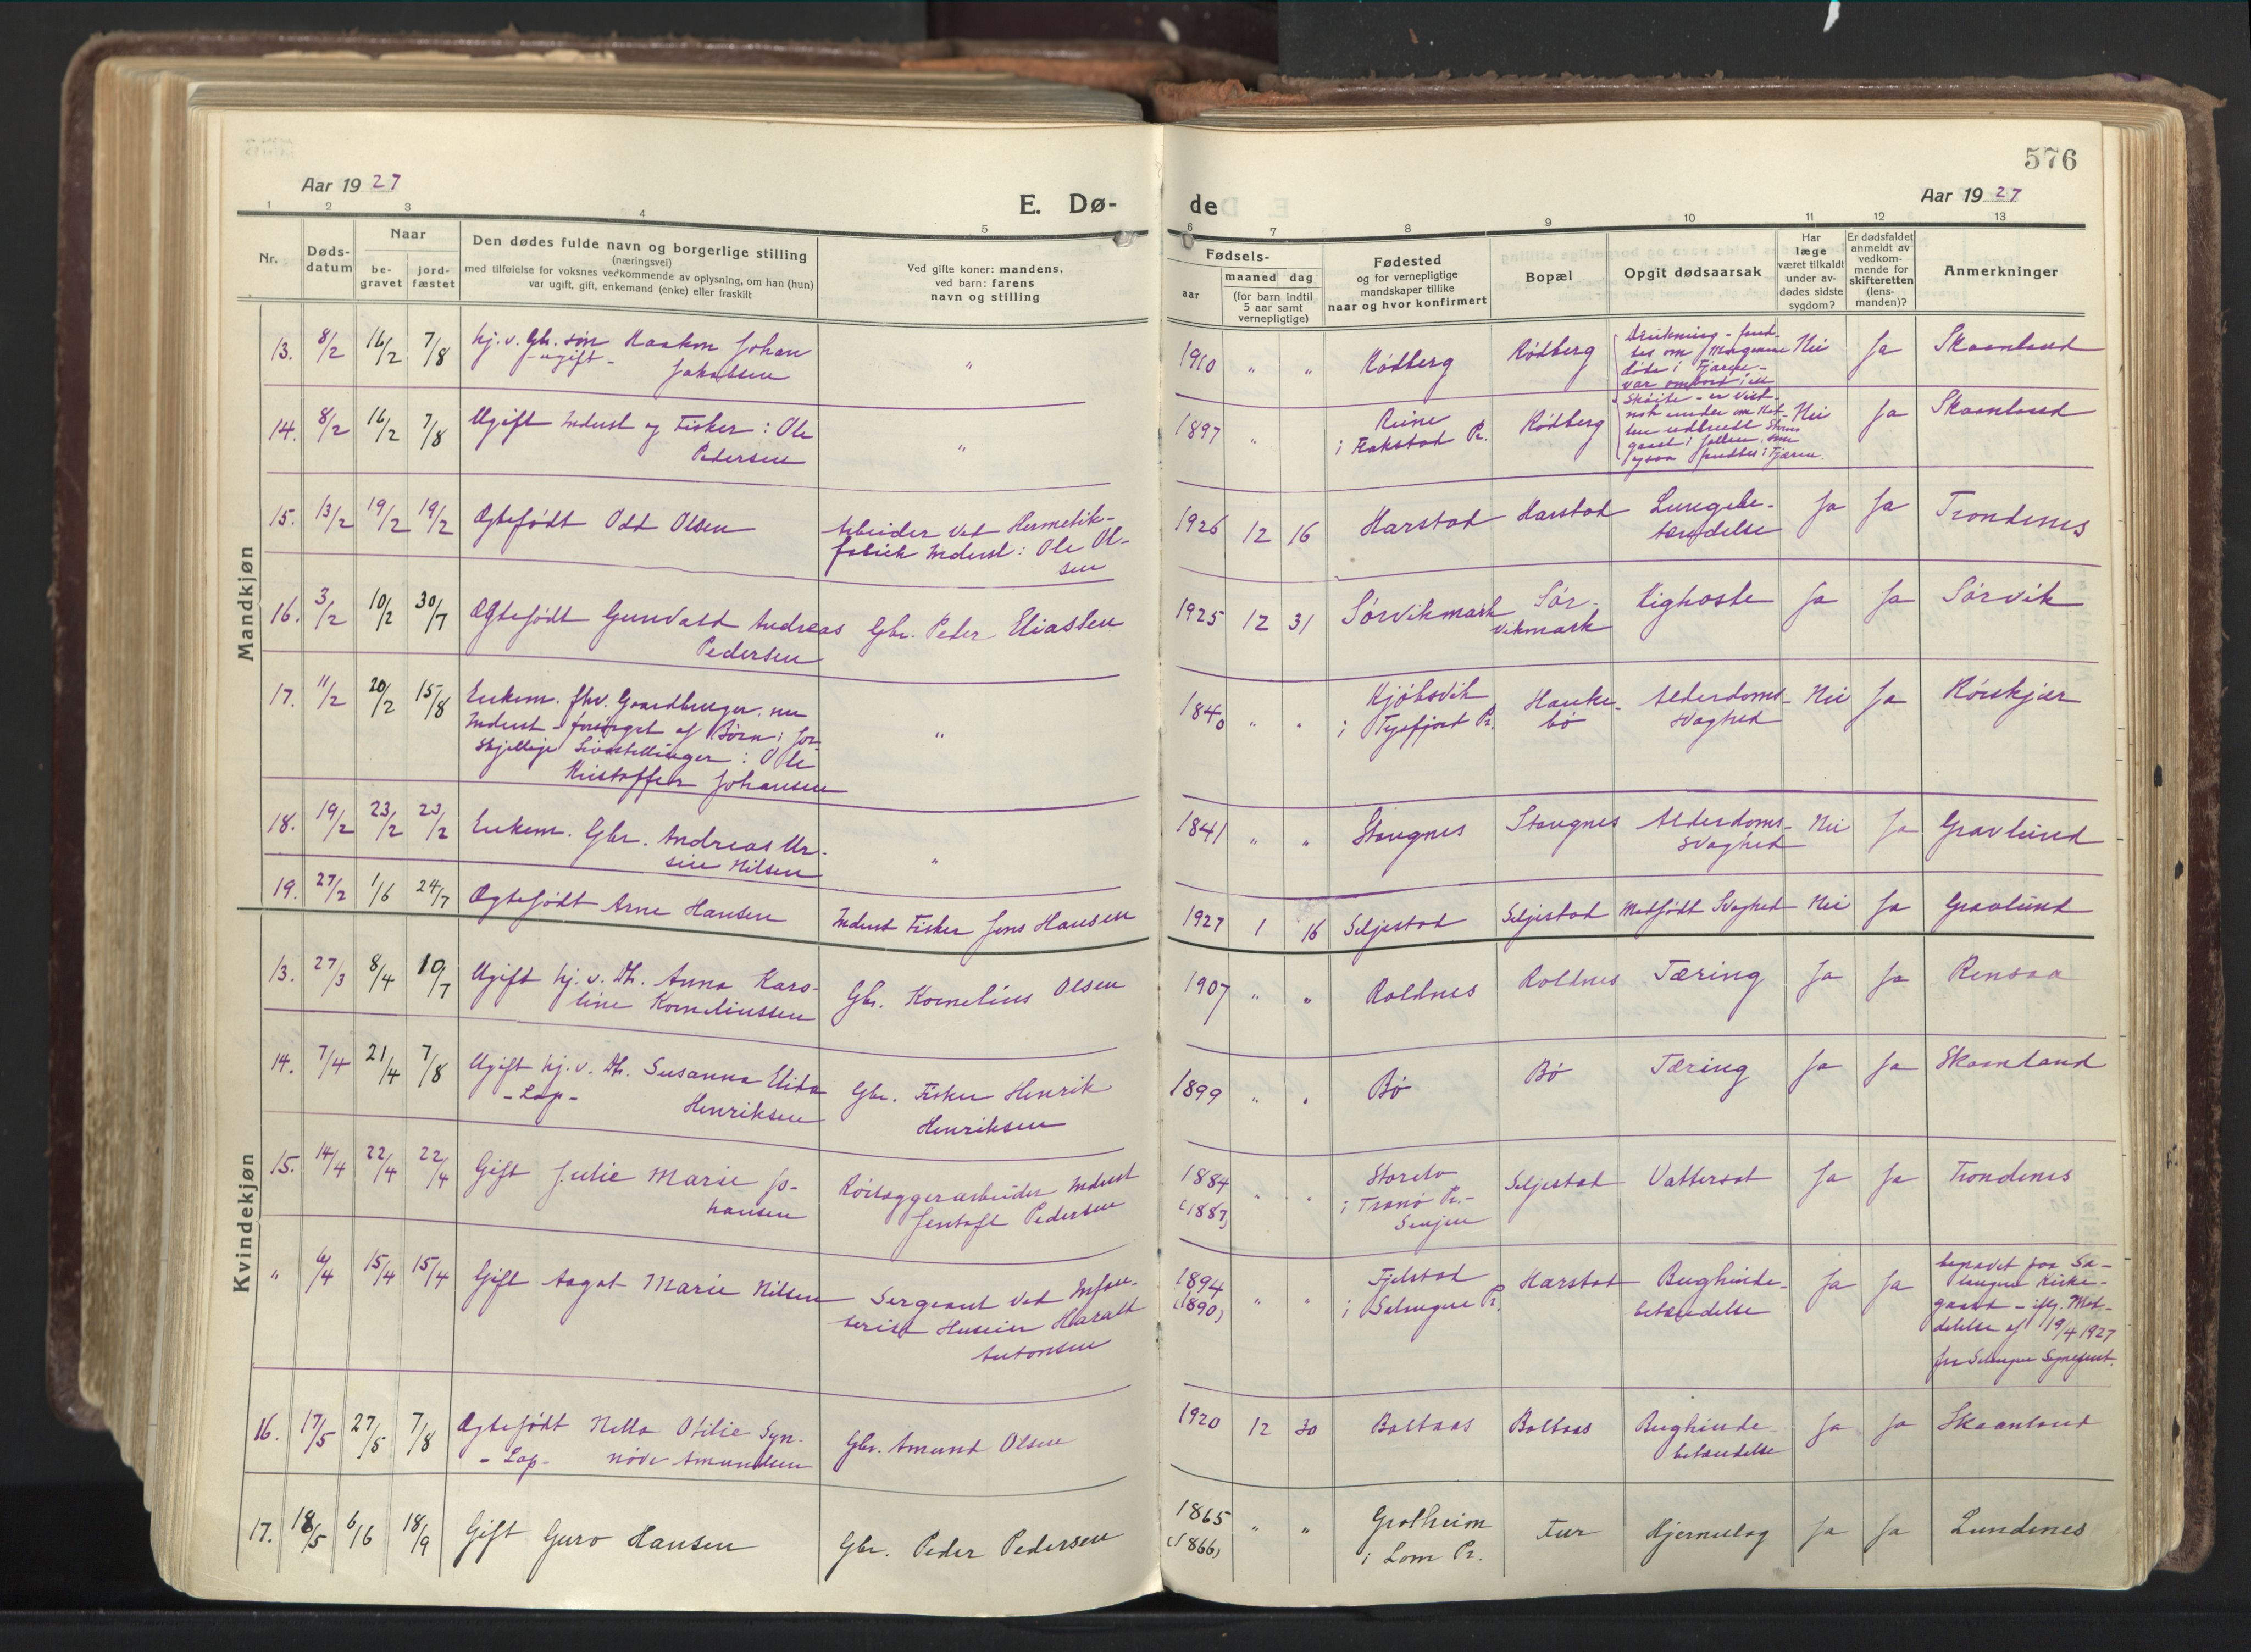 576
Aar 1927
E. Dø-
de
Aar 1927
1 2 3 4 5 6 7 8 9 10 11 12 13
Nr.
Døds-
datum
Naar
be-
gravet
jord-
fæstet
Den dødes fulde navn og borgerlige stilling
(næringsvei)
med tilføielse for voksnes vedkommende av oplysning, om han (hun)
var ugift, gift, enkemand (enke) eller fraskilt
Ved gifte koner: mandens,
ved barn: farens
navn og stilling
Fødsels-
aar
maaned dag
(for barn indtil
5 aar samt
vernepligtige)
Fødested
og for vernepligtige
mandskaper tillike
naar og hvor konfirmert
Bopæl
Opgit dødsaarsak
Har
læge
været tilkaldt
under av-
dødes sidste
sygdom?
Er dødsfaldet
anmeldt av
vedkom-
mende for
skifteretten
(lens-
manden)?
Anmerkninger
Mandkjøn
13. 8/2 16/2 7/8 hj. v. Gbr. søn Haakon Johan
- ugift - Jakobsen
" 1910 " " Rødberg Rødberg
Drukning - fand-
tes om Morgenen
døde i Fjæren -
var ombord i en
Nei Ja Skaanland
14. 8/2 16/2 7/8 Ugift Inderst og Fisker: Ole
Pedersen
" 1897 " Reine
i Flakstad Pr.
Rødberg
Skøite - er vist-
nok under om Nat-
ten udbrudt Storm
gaaet i
ogsaa fandtes i Fjæren.
Nei Ja Skaanland
15. 13/2 19/2 19/2 Ægtefødt Odd Olsen
Arbeider ved Hermetik-
fabrik Inderst: Ole Ol-
sen
1926 12 16 Harstad Harstad Lungebe-
tændelse
Ja Ja Trondenes
16. 3/2 10/2 30/7 Ægtefødt Gunvald Andreas
Pedersen
Gbr. Peder Eliassen
1925 12 31 Sørvikmark Sør-
vikmark
Kighoste Ja Ja Sørvik
17. 11/2 20/2 15/8 Enkem. fhv. Gaardbruger, nu
Inderst - forsørget af Børn i for-
skjellige Livsstillinger: Ole
Kristoffer Johansen
" 1840 " " Kjøbsvik
i Tysfjord Pr.
Hauke-
bø
Alderdoms-
svaghed
Nei Ja Røiskjær
18. 19/2 23/2 23/2 Enkem. Gbr. Andreas Ur-
sin Nilsen
" 1841 " " Stangnes Stangnes Alderdoms-
svaghed
Nei Ja Gravlund
19. 27/2 1/6 24/7 Ægtefødt Arne Hansen
Inderst Fisker Jens Hansen
1927 1 16 Seljestad Seljestad Medfødt Svaghed Nei Ja Gravlund
Kvindekjøn
13. 27/3 8/4 10/7 Ugift hj. v. Dtr. Anna Karo-
line Korneliussen
Gbr. Kornelius Olsen
1907 " " Roldnes Roldnes Tæring Ja Ja Rensaa
14. 7/4 21/4 7/8 Ugift hj. v. Dtr. Susanna Elida
- Lap - Henriksen
Gbr. Fisker Henrik
Henriksen
1899 " " Bø Bø Tæring Ja Ja Skaanland
15. 14/4 22/4 22/4 Gift Julie Marie Jo-
hansen
Rørlæggerarbeider Inderst
Jentoft Pedersen
1884
(1887)
" " Storelv
i Tranø Pr. -
Senjen
Seljestad Vattersot Ja Ja Trondenes
" 6/4 15/4 15/4 Gift Aagot Marie Nilsen
Sergeant ved Infan-
teriet Huseier Harald
Antonsen
1894
(1890)
" " Fjelstad
i Salangen Pr.
Harstad Bughinde-
betændelse
Ja Ja
begravet paa Sa-
langen Kirke-
gaard - iflg. Med-
delelse af 19/4 1927
fra Salangen Sognepræst.
16. 17/5 27/5 7/8 Ægtefødt Nella Otilie Syn-
- Lap - nøve Amundsen
Gbr. Amund Olsen
1920 12 30 Boltaas Boltaas Bughinde-
betændelse
Ja Ja Skaanland
17. 18/5 6/16 18/9 Gift Guro Hansen
Gbr. Peder Pedersen
1865
(1866)
" " Grotheim
i Lom Pr.
Fur Hjerneslag Ja Ja Lundenes